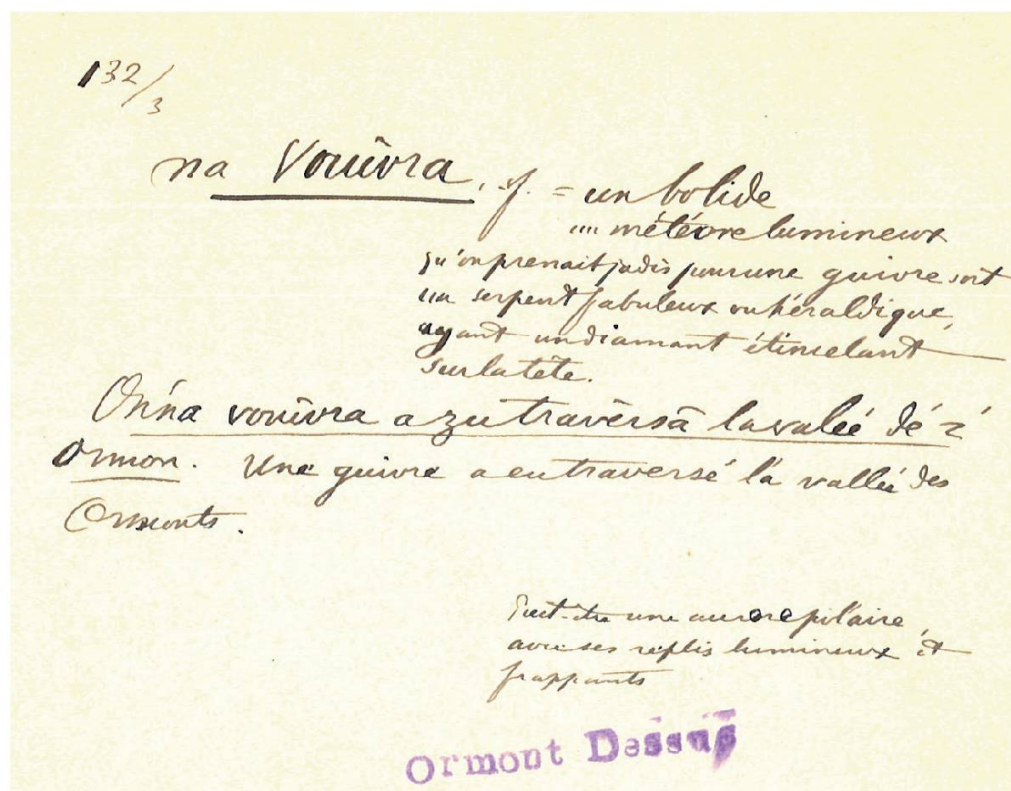 132/3
na Vouîvra, f. = un bolide
"" météore lumineux
qu'on prenait jadis pour une guivre soit
un serpent fabuleux ou héraldique,
ayant un diamant étincelant
sur la tête.
On'na vouîvra a zu traversâ la valée dé z'
Ormon. Une guivre a eu traversé la vallée des
Ormonts.
Peut-être une aurore polaire,
avec ses replis lumineux et
frappants
Ormont Dessus